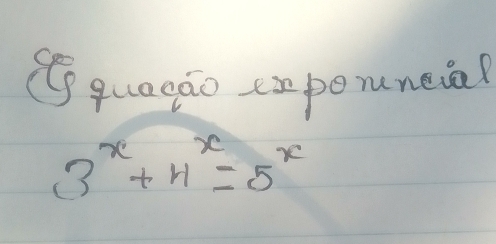 Equação exponencial
3^x + 4^x = 5^x